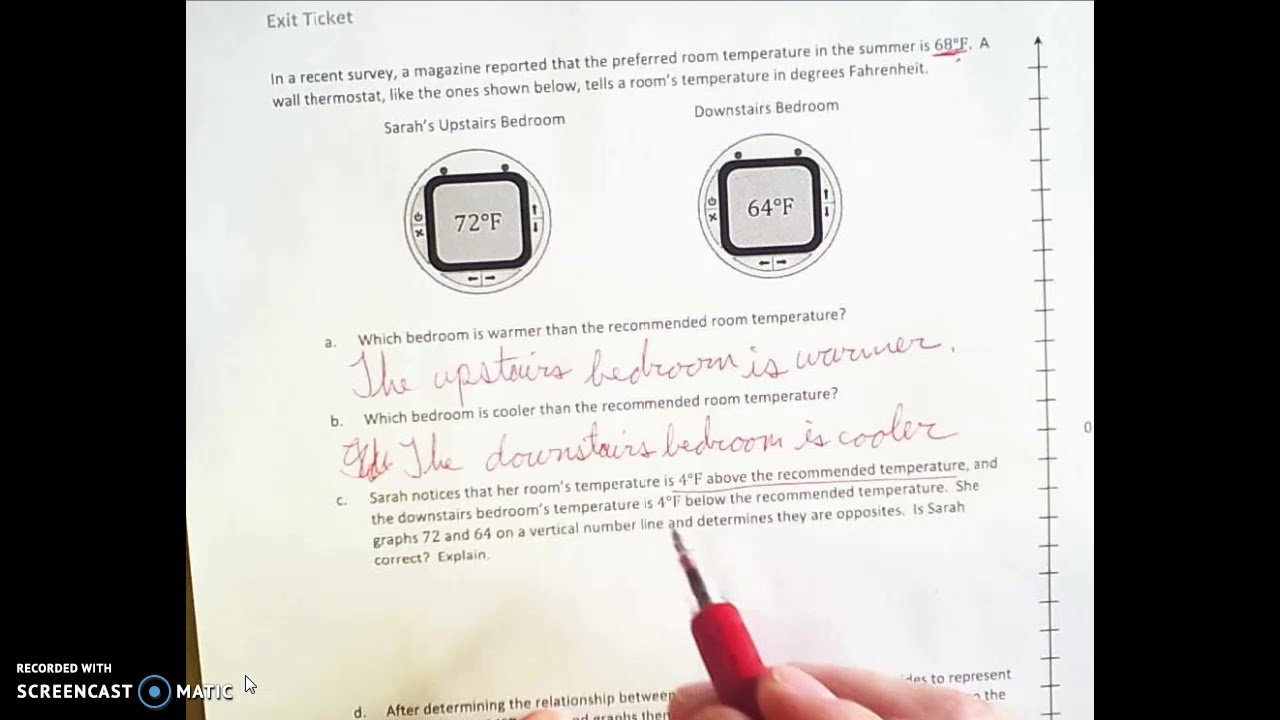 Exit Ticket
In a recent survey, a magazine reported that the preferred room temperature in the summer is 68°F. A
wall thermostat, like the ones shown below, tells a room's temperature in degrees Fahrenheit.
Sarah's Upstairs Bedroom
Downstairs Bedroom
72°F
64°F
a. Which bedroom is warmer than the recommended room temperature?
The upstairs bedroom is warmer.
b. Which bedroom is cooler than the recommended room temperature?
The downstairs bedroom is cooler
0
c. Sarah notices that her room's temperature is 4°F above the recommended temperature, and
the downstairs bedroom's temperature is 4°F below the recommended temperature. She
graphs 72 and 64 on a vertical number line and determines they are opposites. Is Sarah
correct? Explain.
d. After determining the relationship between to represent
the
RECORDED WITH
SCREENCAST MATIC